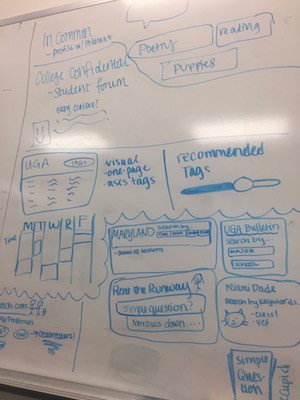 In Common
- profile w/interest
Poetry
reading
puppies
College Confidential
- student forum
easy classes?
U
UGA
TAGS
visual
one-page
uses tags
recommended
Tags
M T W R F
Time
MARYLAND search by...
UGA Bulletin
search by...
MAJOR
SCHOOL
Rent the Runway
simple question?
narrows down....
Miami Dade
Search by keywords
- class!
- vet
simple
Ques-
tion